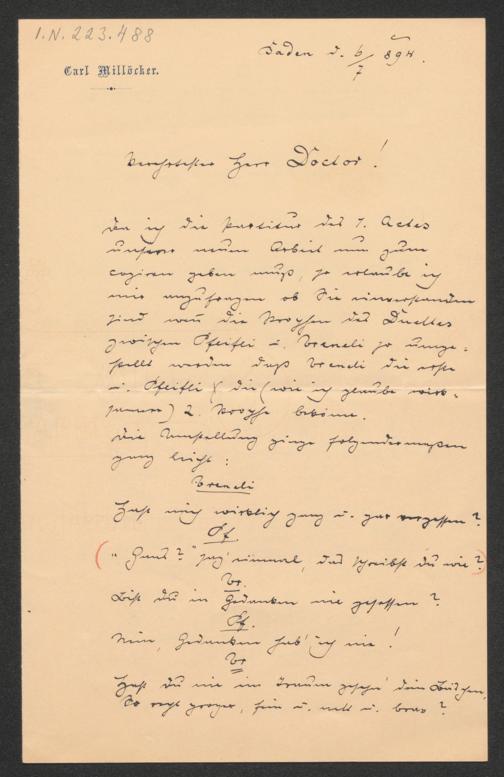 I.N. 223.488
Carl Millöcker.
Baden d. 6/7 894.
Verehrtester Herr Doctor!
Da ich die Partitur des 1. Actes
unserer neuen Arbeit nun zum
copiren geben muß, so erlaube ich
mir anzufragen ob Sie einverstanden
sind wenn die Strophen des Duettes
zwischen Pfeifli u. Vreneli so umge-
stellt werden daß Vreneli die erste
u. Pfeifli die (wie ich glaube wirk-
samere) 2. Strophe bekäme.
Die Umstellung ginge folgendermaßen
ganz leicht:
Vreneli
Hast mich wirklich ganz u. gar vergessen?
Pf.
("Ganz?" sag' einmal, das schreibst du wie?)
Vr.
Bist du in Gedanken nie gesessen?
Pf.
Nein, Gedanken hab' ich nie!
Vr
Hast du nie im Traum geseh'n dein Bübchen,
So recht herzig, fein u. nett u. brav?